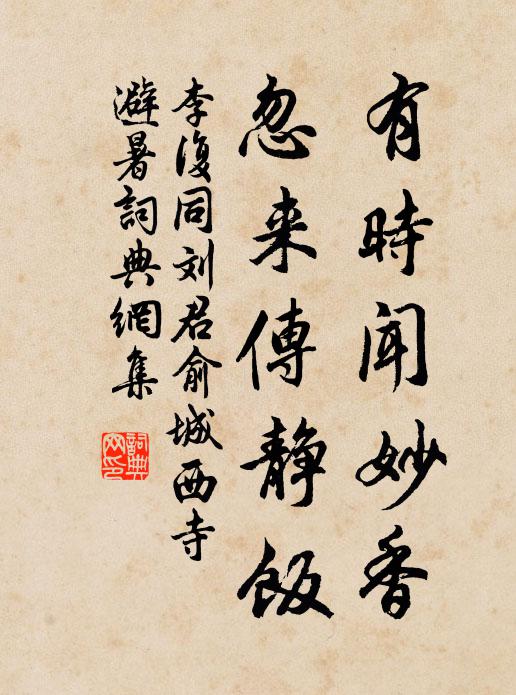 有時闻妙香
忽来傳静飯
李復同刘君俞城西寺
避暑詞典網集
詞典网印